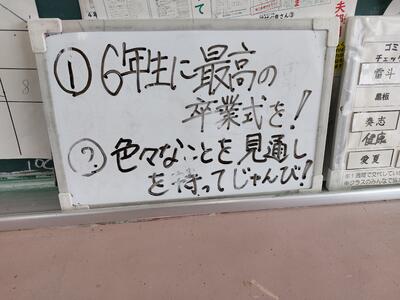 ① 6年生に最高の
卒業式を!
② 色々なことを見通し
を持ってじゅんび!
ゴミ
チェック
雷斗
黒板
奏志
健康
愛夏